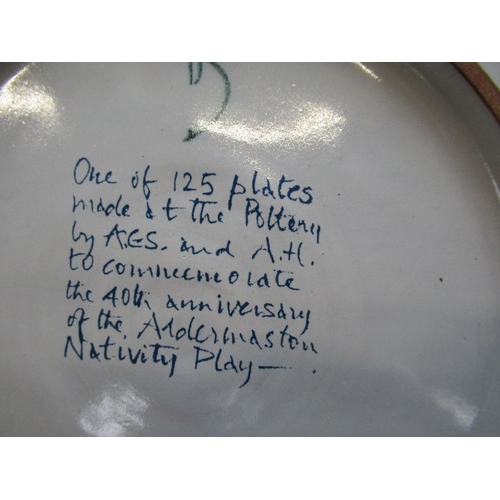 One of 125 plates
made at the Pottery
by A.G.S. and A.H.
to commemorate
the 40th anniversary
of the Aldermaston
Nativity Play—.